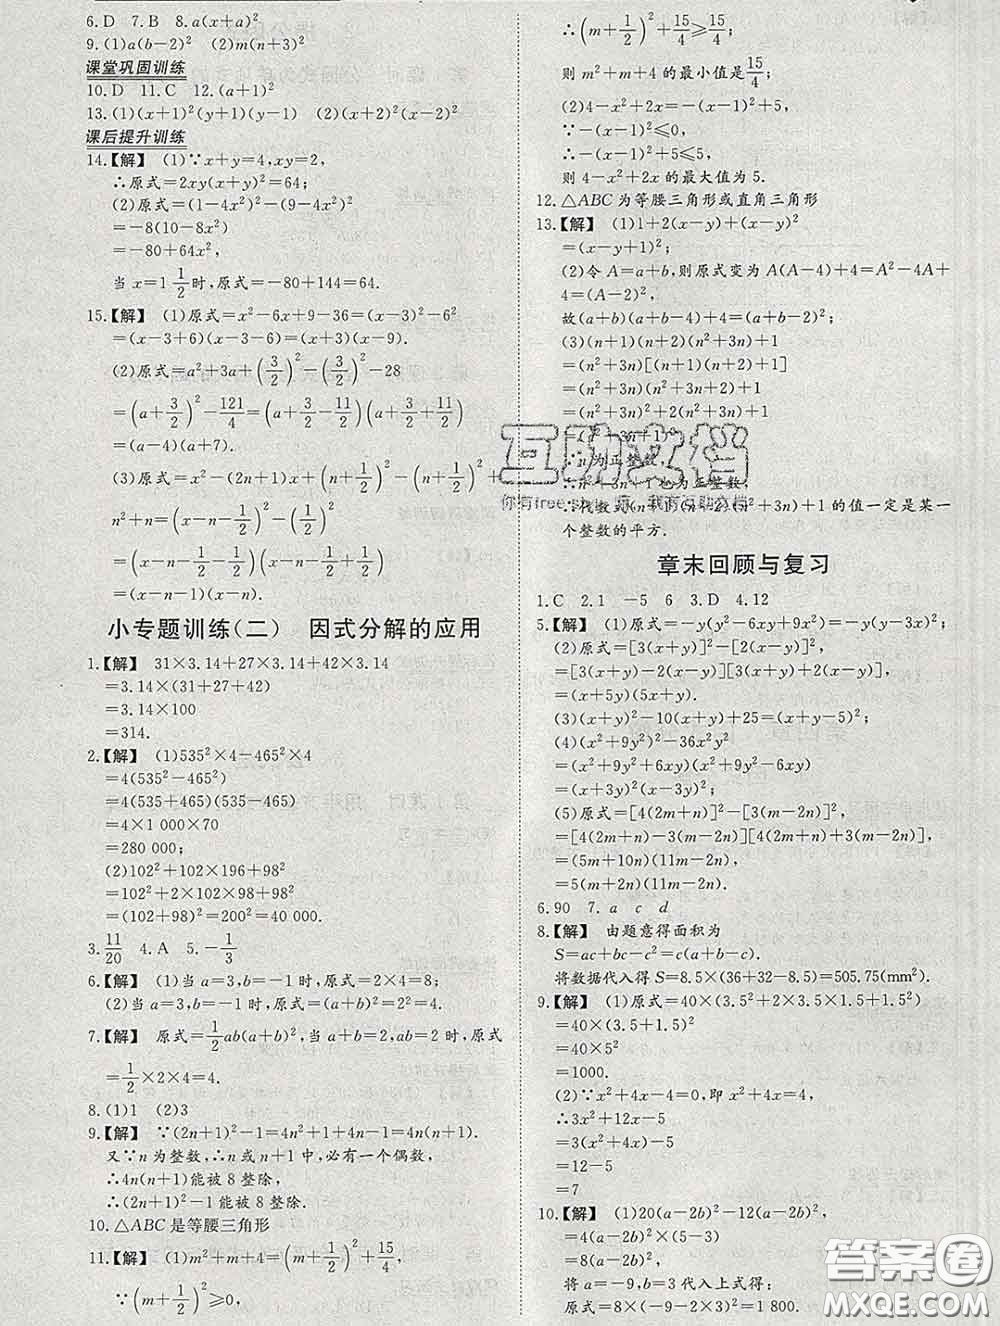 6.D 7.B 8.a(x+a)²
9.(1)a(b-2)² (2)m(n+3)²
课堂巩固训练
10.D 11.C 12.(a+1)²
13.(1)(x+1)²(y+1)(y-1) (2)(x+2)²(x-2)²
课后提升训练
14.【解】 (1)∵x+y=4,xy=2,
∴原式=2xy(x+y)²=64;
(2)原式=(1-4x²)²-(9-4x²)²
=-8(10-8x²)
=-80+64x²,
当 x=1 1/2 时,原式=-80+144=64.
15.【解】 (1)原式=x²-6x+9-36=(x-3)²-6²
=(x-3+6)(x-3-6)=(x+3)(x-9).
(2)原式=a²+3a+(3/2)²-(3/2)²-28
=(a+3/2)²-121/4=(a+3/2-11/2)(a+3/2+11/2)
=(a-4)(a+7).
(3)原式=x²-(2n+1)x+(n+1/2)²-(n+1/2)²+
n²+n=(x-n-1/2)²-(1/2)²
=(x-n-1/2-1/2)(x-n-1/2+1/2)
=(x-n-1)(x-n).
小专题训练(二) 因式分解的应用
1.【解】 31×3.14+27×3.14+42×3.14
=3.14×(31+27+42)
=3.14×100
=314.
2.【解】 (1)535²×4-465²×4
=4(535²-465²)
=4(535+465)(535-465)
=4×1 000×70
=280 000;
(2)102²+102×196+98²
=102²+2×102×98+98²
=(102+98)²=200²=40 000.
3. 11/20 4.A 5.-1/3
6.【解】 (1)当 a=3,b=-1 时,原式=2×4=8;
(2)当 a=3,b=-1 时,原式=(a+b)²=2²=4.
7.【解】 原式=1/2 ab(a+b)²,当 a+b=2,ab=2 时,原式
=1/2×2×4=4.
8.(1)1 (2)3
9.【解】 ∵(2n+1)²-1=4n²+1+4n-1=4n(n+1).
又∵n为整数,∴n或 n+1 中,必有一个偶数,
∴4n(n+1)能被 8 整除.
∴(2n+1)²-1 能被 8 整除.
10.△ABC是等腰三角形
11.【解】 (1)m²+m+4=(m+1/2)²+15/4,
∵(m+1/2)²≥0,
∴(m+1/2)²+15/4≥15/4;
则 m²+m+4 的最小值是 15/4;
(2)4-x²+2x=-(x-1)²+5,
∵-(x-1)²≤0,
∴-(x-1)²+5≤5,
则 4-x²+2x 的最大值为 5.
12.△ABC为等腰三角形或直角三角形
13.【解】 (1)1+2(x-y)+(x-y)²
=(x-y+1)²;
(2)令 A=a+b,则原式变为 A(A-4)+4=A²-4A+
4=(A-2)²,
故(a+b)(a+b-4)+4=(a+b-2)²;
(3)(n+1)(n+2)(n²+3n)+1
=(n²+3n)[(n+1)(n+2)]+1
=(n²+3n)(n²+3n+2)+1
=(n²+3n)²+2(n²+3n)+1
=(n²+3n+1)².
∵n为正整数,
∴n²+3n+1也为正整数,
∴代数式(n+1)(n+2)(n²+3n)+1 的值一定是某一
个整数的平方.
互助文档
章末回顾与复习
1.C 2.1 -5 6 3.D 4.12
5.【解】 (1)原式=-y(y²-6xy+9x²)=-y(y-3x)²;
(2)原式=[3(x+y)]²-[2(x-y)]²
=[3(x+y)-2(x-y)][3(x+y)+2(x-y)]
=(x+5y)(5x+y).
(3)(x+y)²-10(x+y)+25=(x+y-5)²;
(4)(x²+9y²)²-36x²y²
=(x²+9y²+6xy)(x²+9y²-6xy)
=(x+3y)²(x-3y)²;
(5)原式=[4(2m+n)]²-[3(m-2n)]²
=[4(2m+n)-3(m-2n)][4(2m+n)+3(m-2n)]
=(5m+10n)(11m-2n)
=5(m+2n)(11m-2n).
6.90 7.a c d
8.【解】 由题意得面积为
S=ac+bc-c²=c(a+b-c).
将数据代入得 S=8.5×(36+32-8.5)=505.75(mm²).
9.【解】 (1)原式=40×(3.5²+2×3.5×1.5+1.5²)
=40×(3.5+1.5)²
=40×5²
=1000.
(2)∵x²+4x-4=0,即 x²+4x=4,
∴3x²+12x-5
=3(x²+4x)-5
=12-5
=7
10.【解】 (1)20(a-2b)²-12(a-2b)²,
=(a-2b)²×(20-12)
=8(a-2b)²,
将 a=-9,b=3 代入上式得:
原式=8×(-9-2×3)²=1 800.
答案圈
MXQE.COM